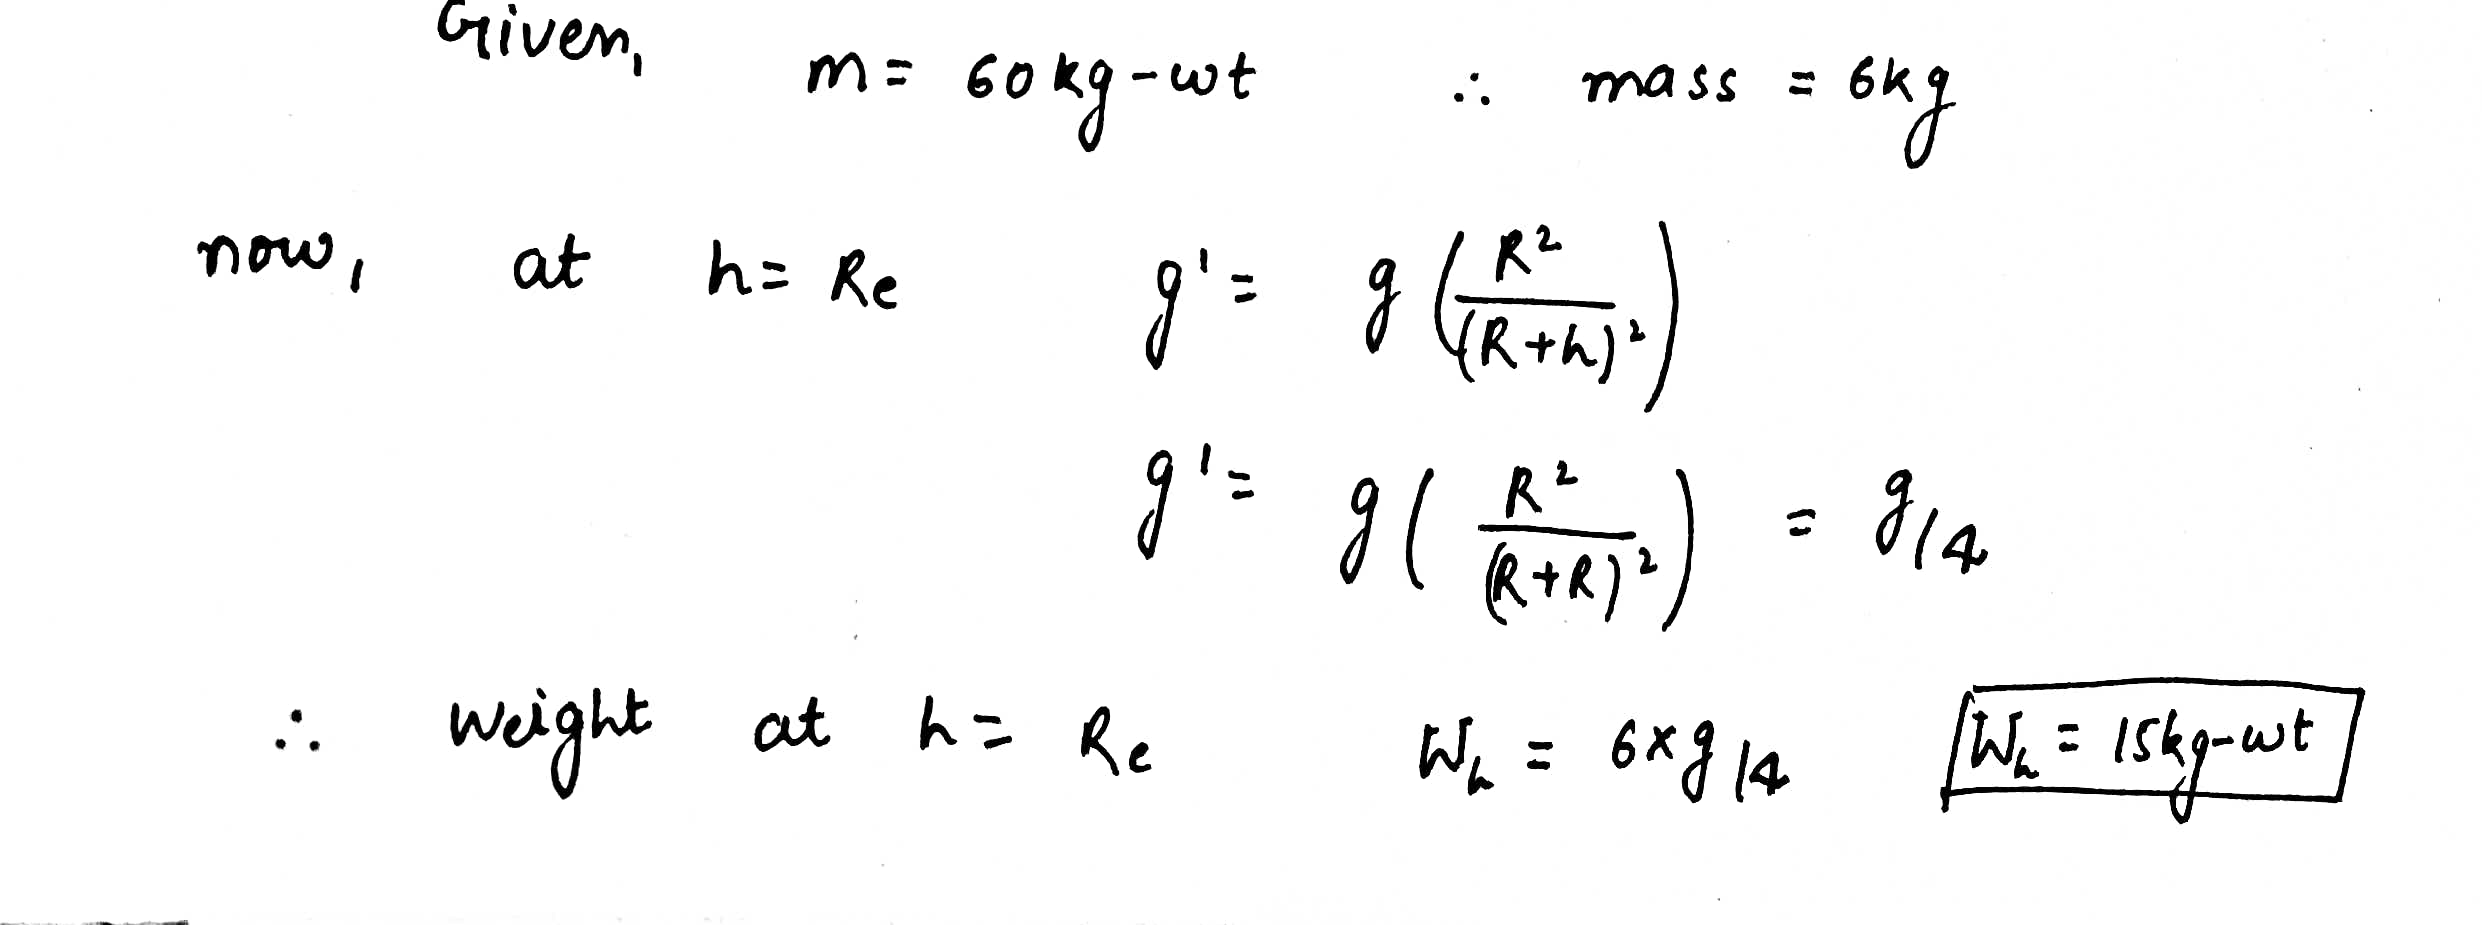 Given, m = 60kg-wt ∴ mass = 6kg
now, at h = Re g' = g(R²/(R+h)²)
g' = g(R²/(R+R)²) = g/4
∴ weight at h = Re Wh = 6×g/4 Wh = 15kg-wt